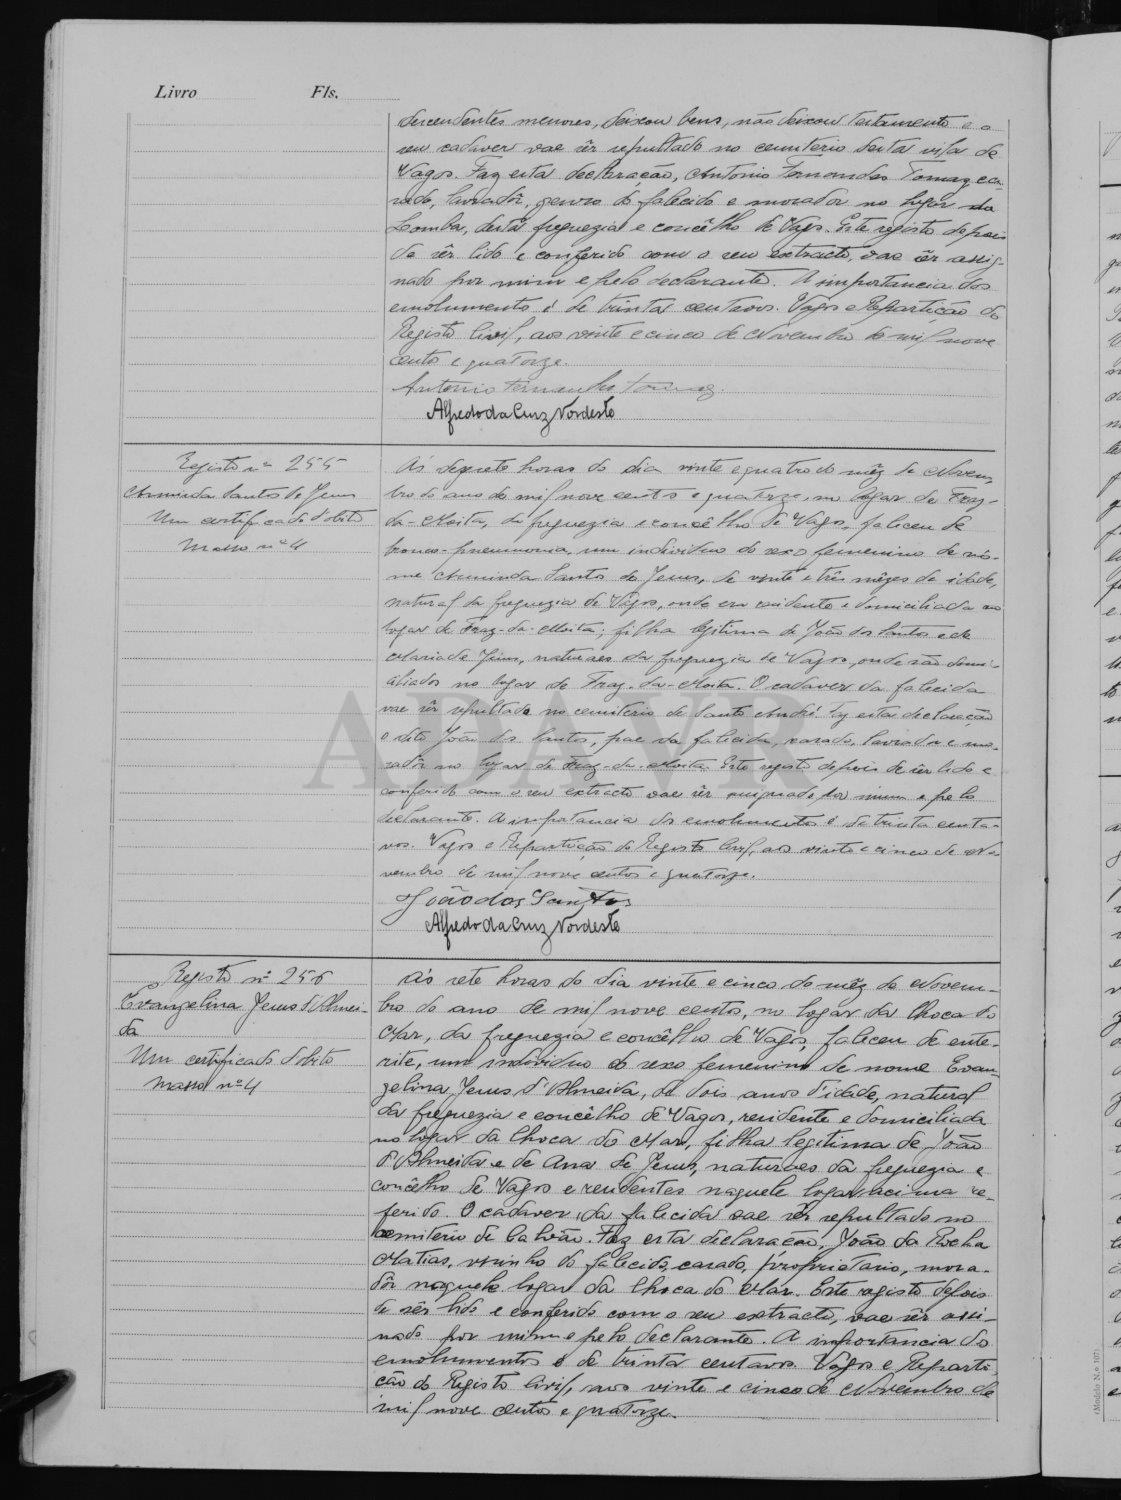 Livro Fls.
descendentes menores, deixou bens, não deixou testamento e o
seu cadaver vae sêr sepultado no cemiterio desta vila de
Vagos. Faz esta declaração, Antonio Fernandes Tomaz, ca-
sado, lavradôr, genro do falecido e moradôr no logar da
Lomba, desta freguezia e concêlho de Vagos. Este registo depois
de sêr lido e conferido com o seu extracto, vae sêr assig-
nado por mim e pelo declarante. A importancia dos
emolumentos é de trinta centavos. Vagos e Repartição do
Registo Civil, aos vinte e cinco de Novembro de mil nove
centos e quatorze.
Antonio Fernandes Tomaz
Alfredo da Cruz Nordeste
Registo nº 255
Arminda Santos de Jesus
Um certificado d'obito
Masso nº 4
Ás dezesete horas do dia vinte e quatro do mêz de Novem-
bro do ano de mil nove centos e quatorze, no logar de Fraz-
da-Moita, da freguezia e concêlho de Vagos, faleceu de
bronco-pneumonia, um individuo do sexo femenino de nô-
me Arminda Santos de Jesus, de vinte e três mêzes de idade,
natural da freguezia de Vagos, onde era residente e domiciliada no
logar de Fraz-da-Moita; filha legitima de João dos Santos e de
Maria de Jesus, naturaes da freguezia de Vagos, onde são domi-
ciliados no logar de Fraz-da-Moita. O cadaver da falecida
vae sêr sepultado no cemiterio de Santo André. Faz esta declaração
o dito João dos Santos, pae da falecida, casado, lavrador e mo-
radôr no logar de Fraz-da-Moita. Este registo depois de sêr lido e
conferido com o seu extracto vae sêr assignado por mim e pelo
declarante. A importancia dos emolumentos é de trinta centa-
vos. Vagos e Repartição do Registo Civil, aos vinte e cinco de No-
vembro de mil nove centos e quatorze.
João dos Santos
Alfredo da Cruz Nordeste
ADAVR
Registo nº 256
Evangelina Jesus d'Almei-
da
Um certificado d'obito
Masso nº 4
Ás sete horas do dia vinte e cinco do mêz de Novem-
bro do ano de mil nove centos, no logar da Choca do
Mar, da freguezia e concêlho de Vagos, faleceu de ente-
rite, um individuo do sexo femenino de nome Evan-
gelina Jesus d'Almeida, de dois anos d'idade, natural
da freguezia e concêlho de Vagos, residente e domiciliada
no logar da Choca do Mar, filha legitima de João
d'Almeida e de Ana de Jesus, naturaes da freguezia e
concêlho de Vagos e residentes naquele logar acima re-
ferido. O cadaver da falecida vae sêr sepultado no
cemiterio de Calvão. Faz esta declaração, João da Rocha
Matias, visinho do falecido, casado, proprietario, mora-
dôr naquele logar da Choca do Mar. Este registo depois
de sêr lido e conferido com o seu extracto, vae sêr assi-
nado por mim e pelo declarante. A importancia dos
emolumentos é de trinta centavos. Vagos e Reparti-
ção do Registo Civil, aos vinte e cinco de Novembro de
mil nove centos e quatorze.
(Modelo N.º 107)